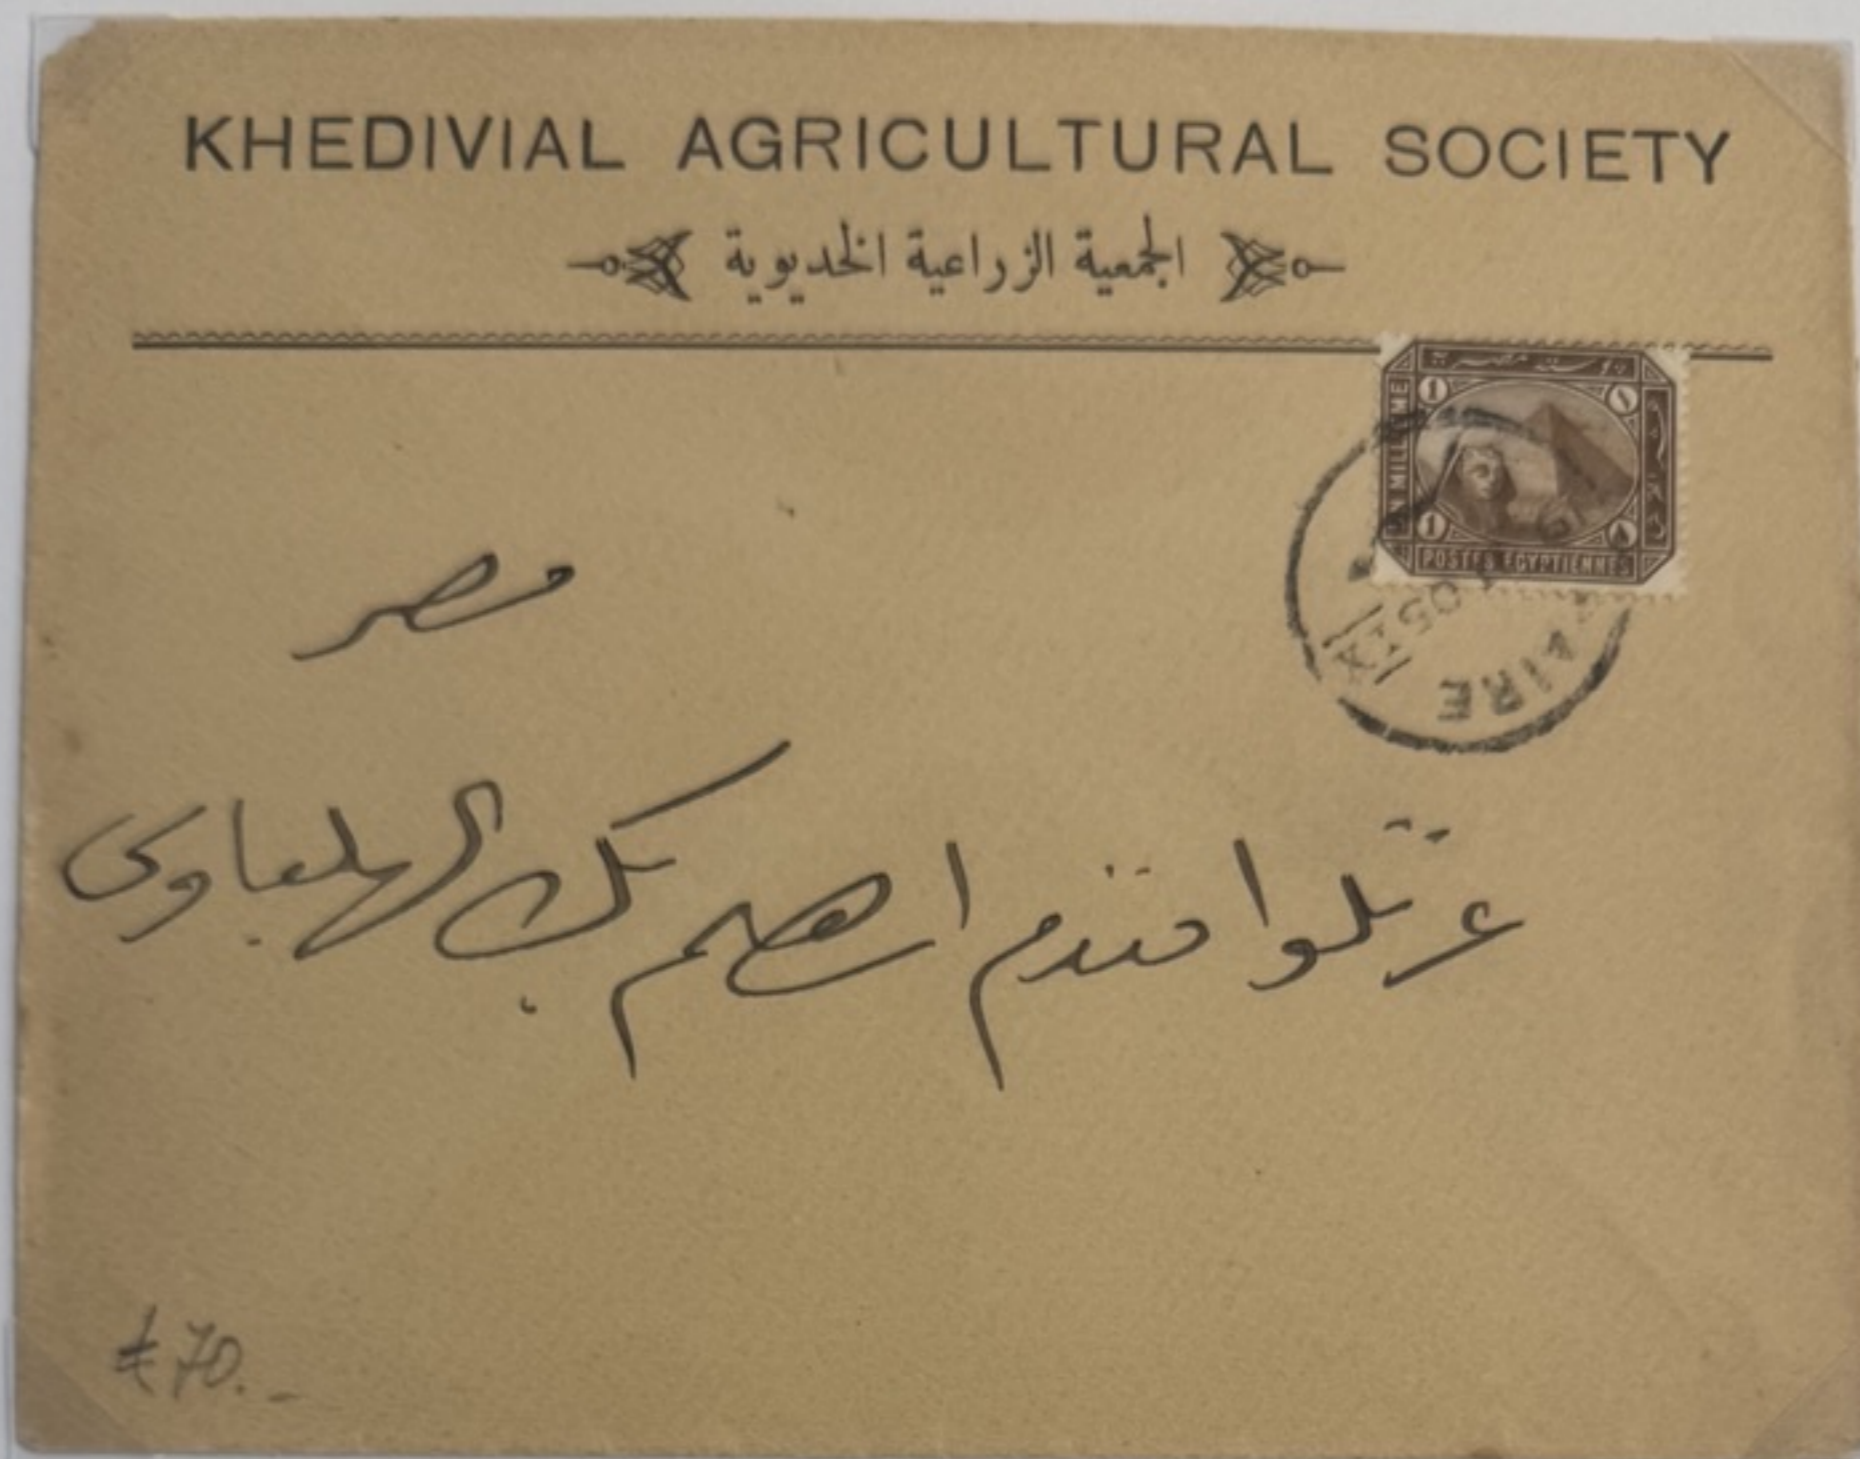 KHEDIVIAL AGRICULTURAL SOCIETY
الجمعية الزراعية الخديوية
بوستة مصرية
UN MILLIEME
1 ١
1 ١
POSTES EGYPTIENNES
CAIRE
05
IX
مصر
عزتلو افندم ابراهيم بك الهلباوى
70.-